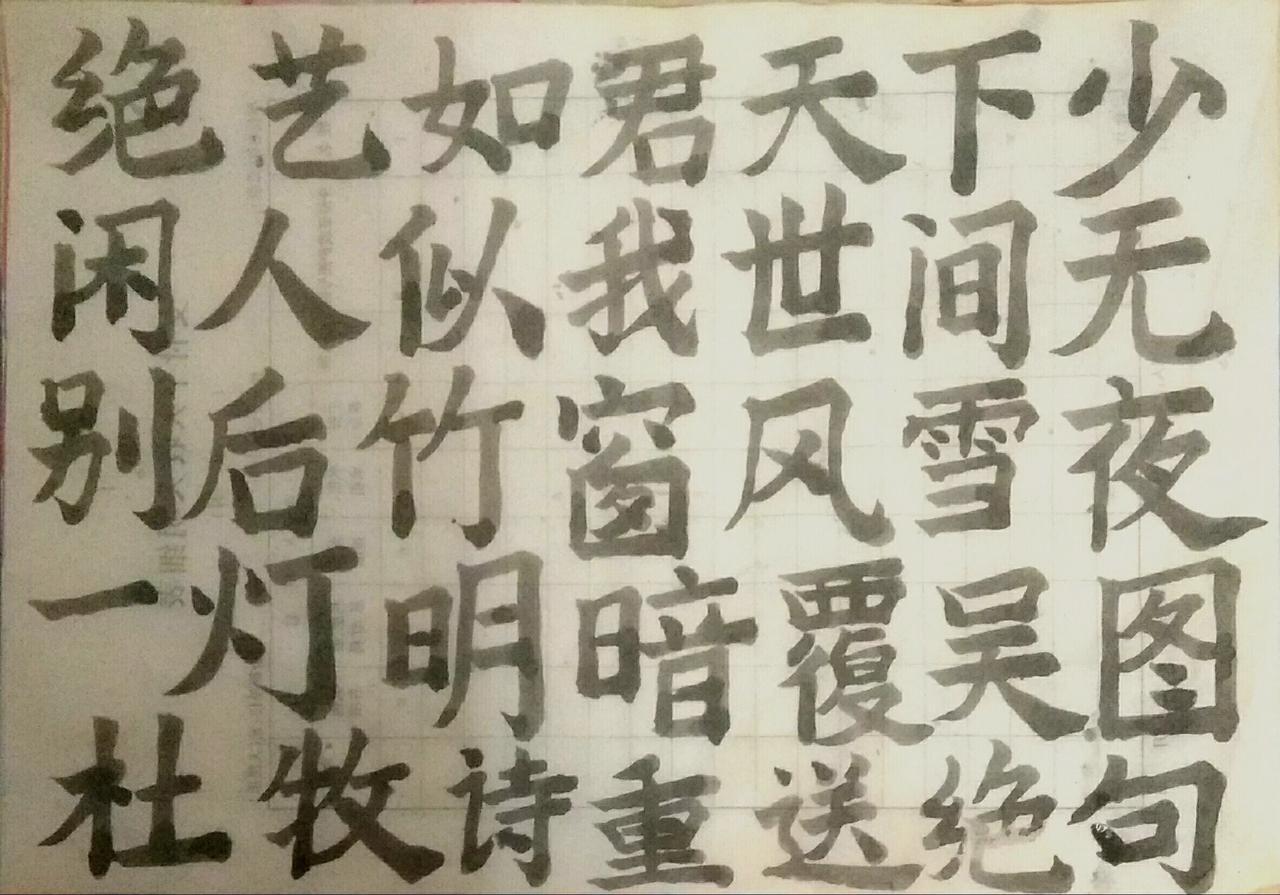 绝艺如君天下少
闲人似我世间无
别后竹窗风雪夜
一灯明暗覆吴图
杜牧诗重送绝句